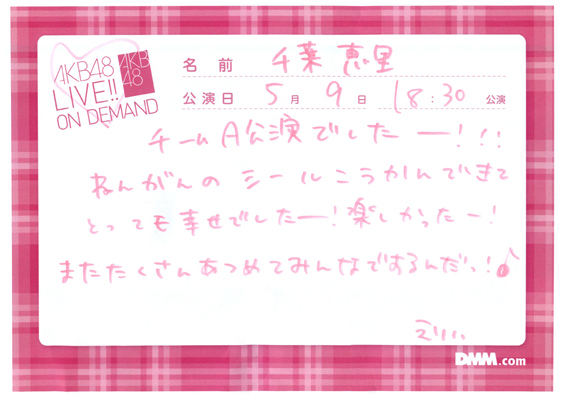 AKB48
LIVE!!
ON DEMAND
AKB
48
名前 千葉恵里
公演日 5月9日 18:30 公演
チームA公演でしたー!!!
ねんがんのシールこうかんできて
とっても幸せでしたー!楽しかったー!
またたくさんあつめてみんなでするんだっ!♪
えりぃ
DMM.com